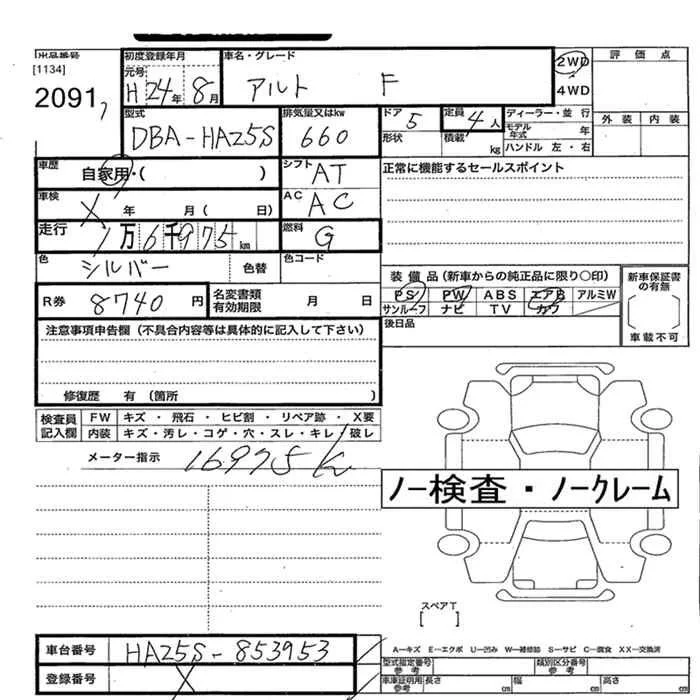 出品番号
[1134]
2091
初度登録年月
元号
H 24年 8月
車名・グレード
アルト F
2WD
4WD
評価点
外装 内装
型式
DBA-HA25S
排気量又はkw
660
ドア
5
形状
定員
4人
積載
kg
ディーラー・並行
モデル年式 年
ハンドル 左・右
車歴
自家用・( )
シフト
AT
正常に機能するセールスポイント
車検
X 年 月( 日)
AC
AC
走行
1万6千975km
燃料
G
色
シルバー
色替
色コード
装備品(新車からの純正品に限り○印)
PS PW ABS エアB アルミW
サンルーフ ナビ TV カワ
新車保証書の有無
[ ]
車載不可
R券
8740円
名変書類有効期限
月 日
後日品
注意事項申告欄(不具合内容等は具体的に記入して下さい)
修復歴 有(箇所 )
検査員記入欄
FW キズ・飛石・ヒビ割・リペア跡・X要
内装 キズ・汚レ・コゲ・穴・スレ・キレ・破レ
メーター指示
16975k
ノー検査・ノークレーム
スペアT
[ ]
車台番号
HA25S-853953
登録番号
X
A−キズ E−エクボ U−凹み W−補修跡 S−サビ C−腐食 XX−交換済
型式指定番号
参考
類別区分番号
参考
車庫証明用
参考
長さ cm
幅 cm
高さ cm